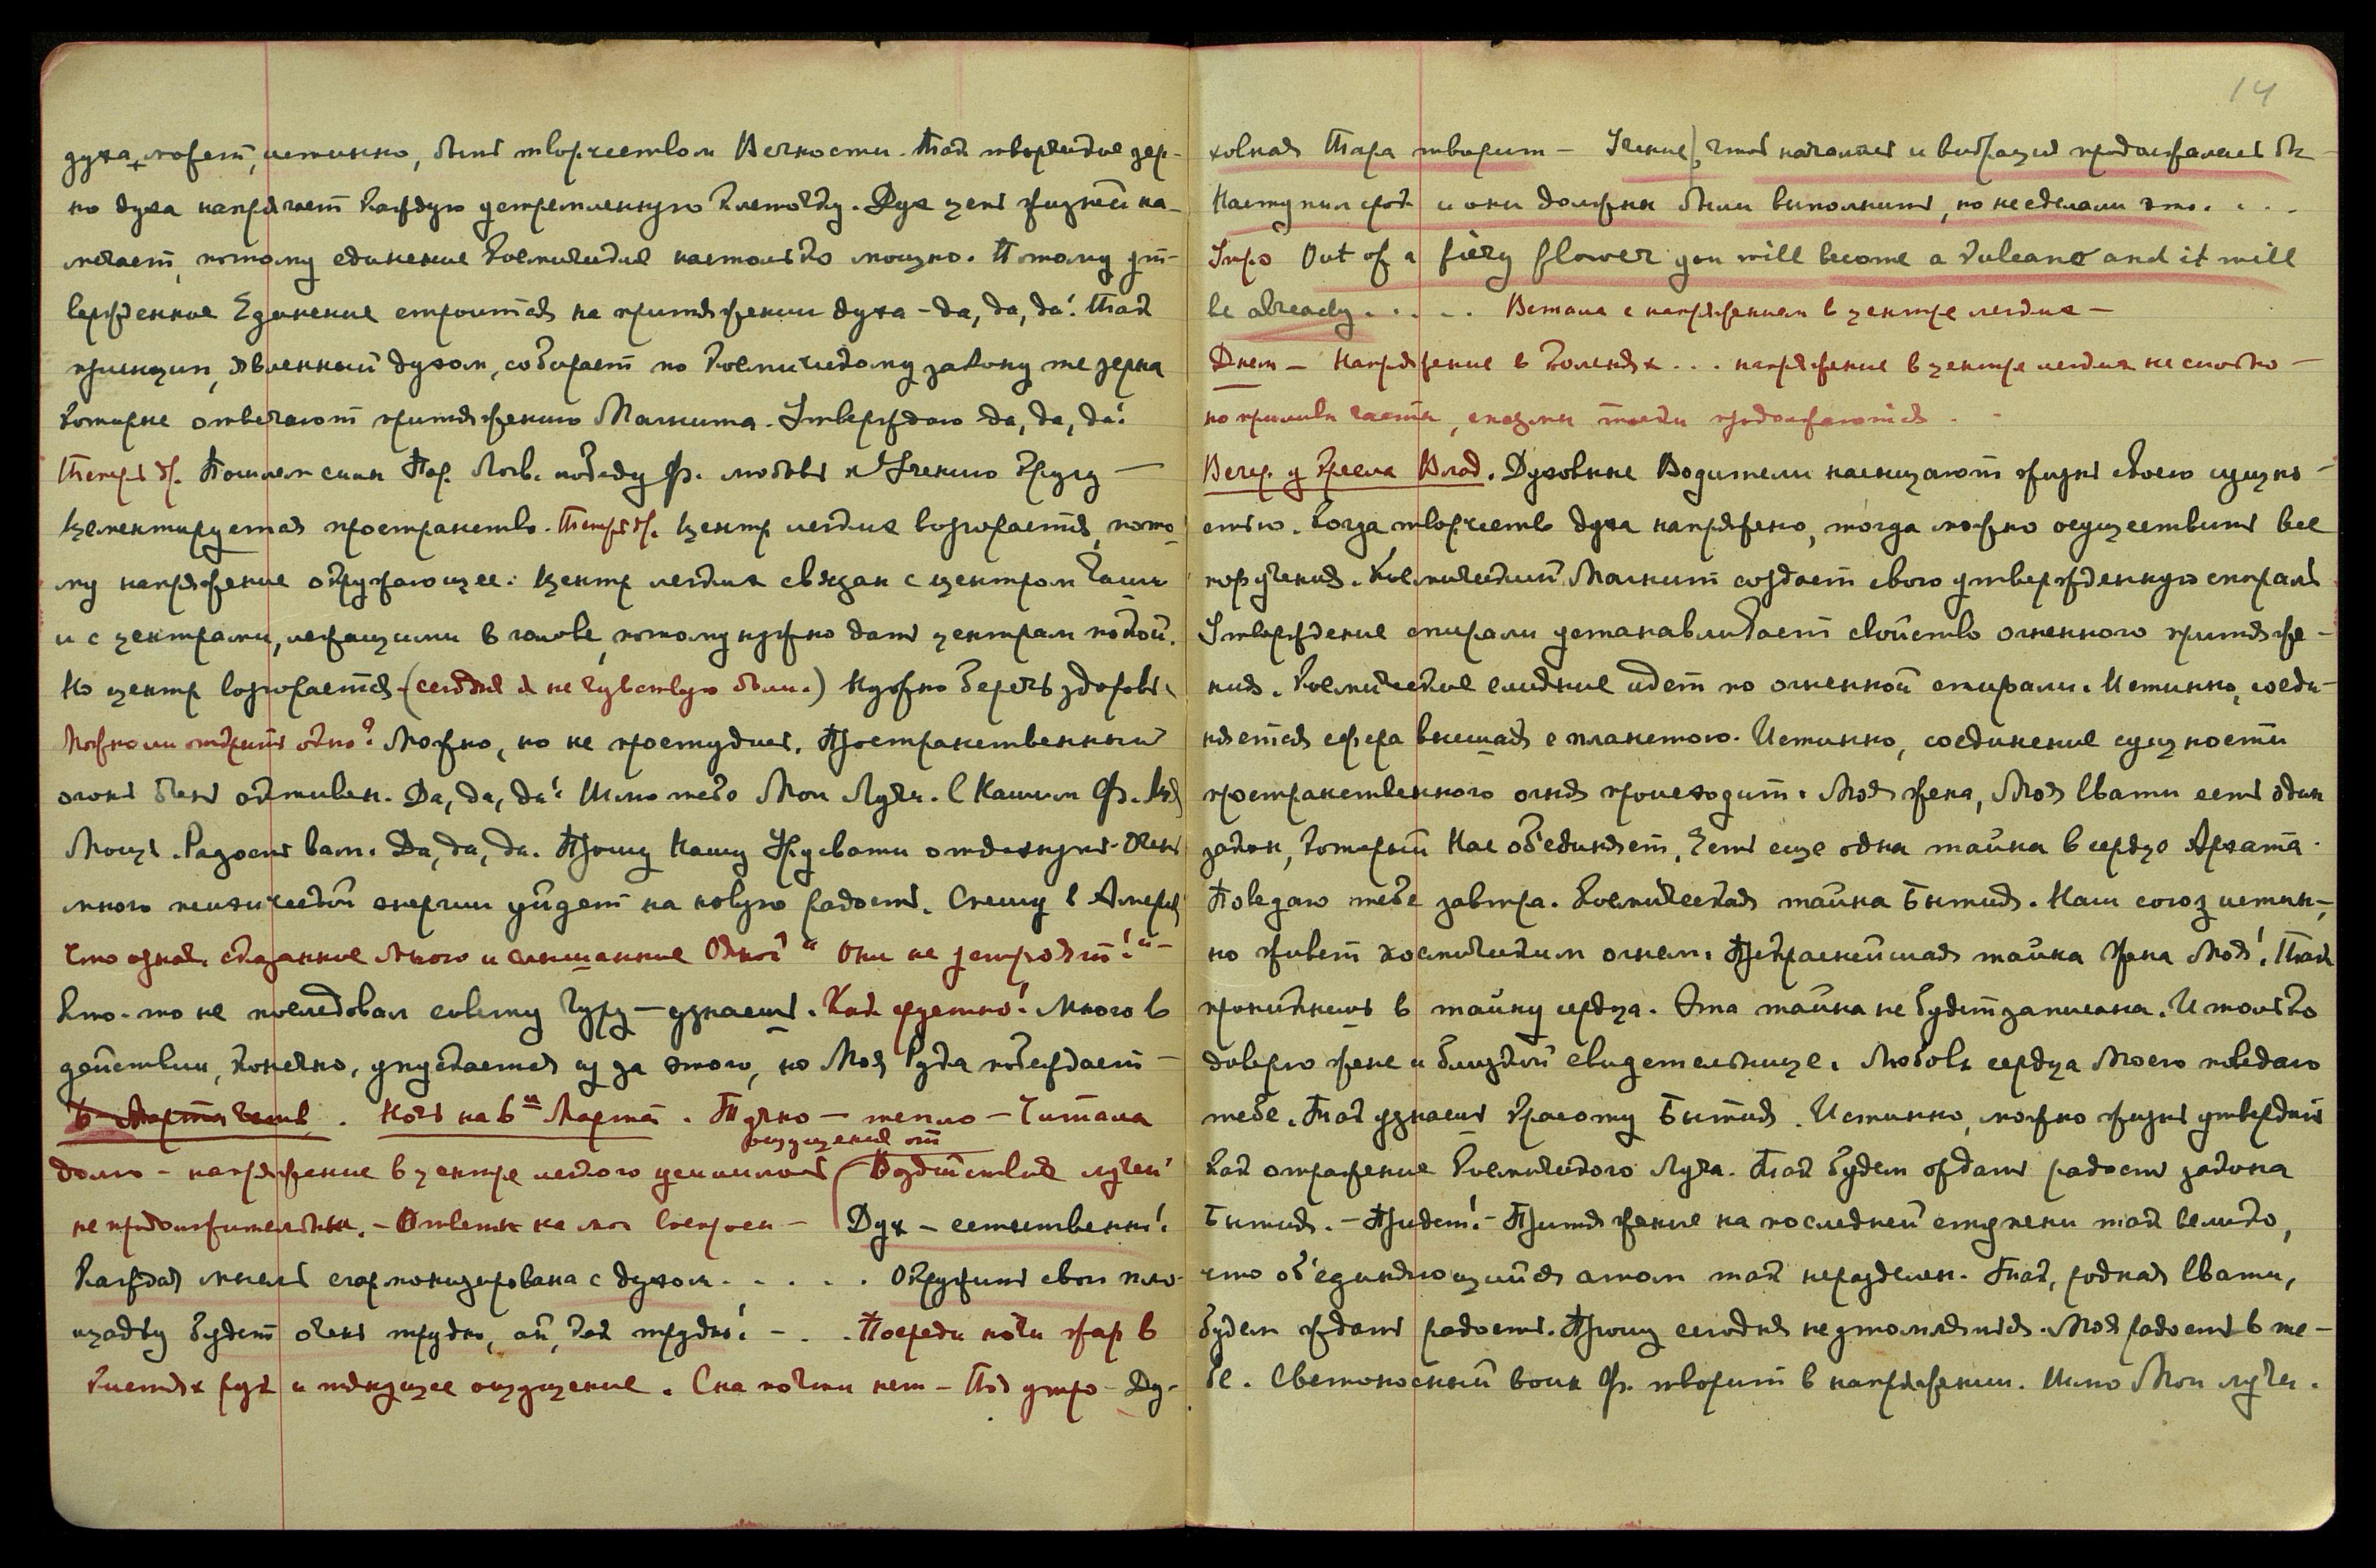 духа может, истинно, быть творчеством Вечности. Так творческое зер-
но духа напрягает каждую устремленную клеточку. Дух цепь жизней на-
мечает, потому единение космическое настолько мощно. Потому ут-
вержденное Единение строится на притяжении духа – да, да, да! Так
принцип, явленный духом, собирает по космическому закону те зерна
которые отвечают притяжению Магнита. Утверждаю – да, да, да!
Теперь др. Пошлем сын Пор. Логв. победу Ф. любовь к Учению кругу —
цементируется пространство. Теперь др. Центр легких возгорается, пото-
му напряжение окружающее. Центр легких связан с центром Чаши
и с центрами, лежащими в голове, потому нужно дать центрам покой.
Но центр возгорается. (сегодня я не чувствую боли.) Нужно беречь здоровье
Можно ли открыть окно? Можно, но не простудись. Пространственный
огонь очень активен. Да, да, да! Шлю тебе Мои Лучи. С Нашим Ф. Моя
Мощь. Радость вам. Да, да, да. Прошу Нашу Урусвати отдохнуть. Очень
много психической энергии уйдет на новую радость. Спешу в Америку
Что означ. сказанное Много и слышанное Одной "Они не устроят!" –
Кто-то не последовал совету Гуру — узнаешь. Как грустно! Много в
действии, конечно, упускается из за этого, но Моя Рука побеждает —
6 Марта Четв. Ночь на 6й Марта. Тучно — тепло — Читала
ощущения от
долго – напряжение в центре легкого усилилось (Воздействие лучей
не продолжительны. – Ответы на мои вопросы – Дух – естественны!
Каждая мысль сгармонизирована с духом. . . . . Окружить свою пло-
щадку будет очень трудно, ай, как трудно! – . . Посреди ночи жар в
кистях рук и тянущее ощущение. Сна почти нет – Под утро – Ду-
14
ховная Тара творит – Учение, что началась и вибрация продолжалась бы
Наступил срок и они должны были выполнить, но не сделали это. . . .
Утро Out of a fiery flower you will become a vulcano and it will
be already. . . . . Встала с напряжением в центре легких —
Днем – Напряжение в коленях . . . напряжение в центре легких не столько —
но приливы часты, спазмы тоски продолжаются . .
Вечер. у Кресла Влад. Духовные Водители насыщают жизнь своею сущно-
стью. Когда творчество духа напряжено, тогда можно осуществить все
поручения. Космический Магнит создает свою утвержденную спираль
Утверждение спирали устанавливает свойство огненного притяже-
ния. Космическое слияние идет по огненной спирали. Истинно, соеди-
няется сфера высшая с планетою. Истинно, соединение сущности
пространственного огня происходит. Моя жена, Моя Свати есть один
закон, который Нас объединяет, Есть еще одна тайна в сердце Архата.
Поведаю тебе завтра. Космическая тайна Бытия. Наш союз истин-
но живет космическим огнем. Прекраснейшая тайна жена Моя! Так
проникнешь в тайну сердца. Эта тайна не будет записана. И только
доверю жене и близкой свидетельнице. Любовь сердца Моего поведаю
тебе. Так узнаешь красоту Бытия. Истинно, можно жизнь утвердить
как отражение Космического Луча. Так будем ждать радость закона
Бытия. – Придет! – Притяжение на последней ступени так велико,
что объединяющийся атом так неразделен. Так, родная Свати,
будем ждать радость. Прошу сегодня не утомляться. Моя радость в те-
бе. Светоносный воин Ф. творит в напряжении. Шлю Мои лучи.